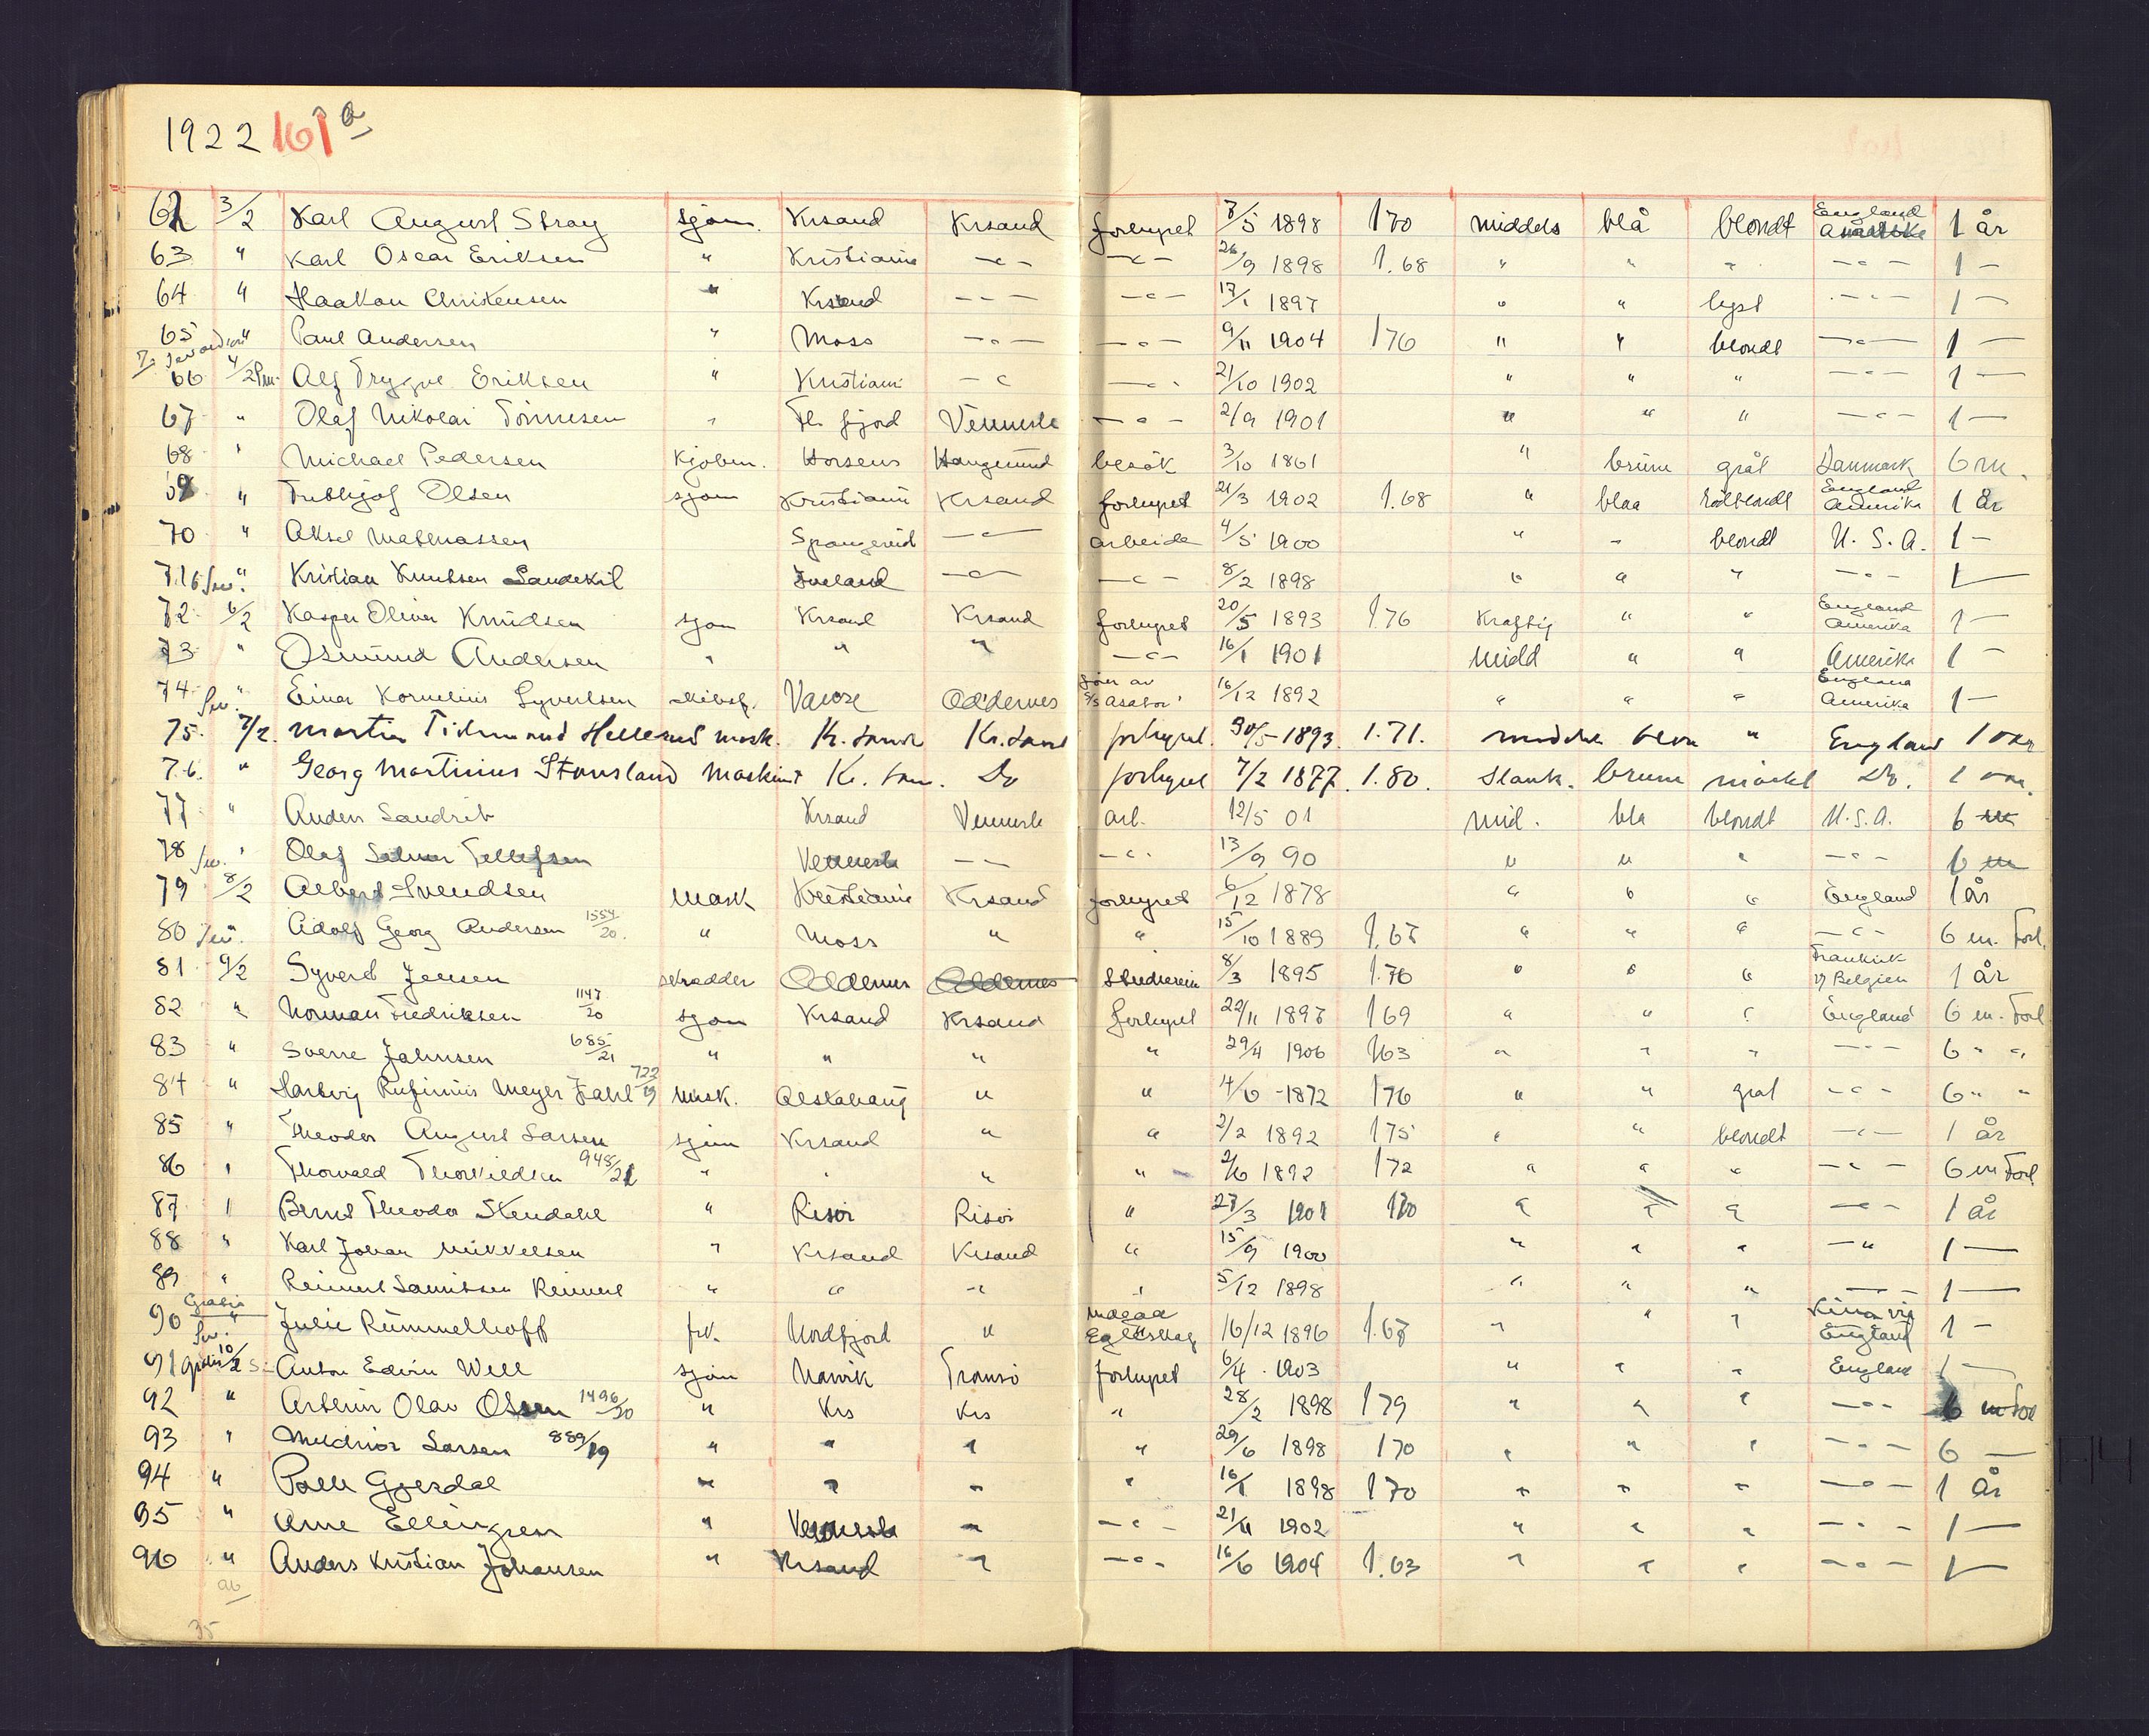 1922 161 a
62 3/2 Karl August Stray sjøm. Krsand Krsand forhyret 7/5 1898 170 middels blå blondt England Amerika 1 år
63 " Karl Oscar Eriksen " Kristiania -"- -"- 26/9 1898 1.68 " " " -"- 1 -
64 " Haakon Christensen " Krsand -"- -"- 17/1 1897 " " lyst -"- 1 -
65 " Paul Andersen " Moss -"- -"- 9/11 1904 176 " " blondt -"- 1 -
66 4/2 Alf Trygve Eriksen " Kristiani -"- -"- 21/10 1902 " " " -"- 1 -
67 " Olaf Nikolai Tönnesen " Fl. fjord Vennesla -"- 2/9 1901 " " " -"- 1 -
68 " Michael Pedersen Kjøbm. Horsens besök 3/10 1861 " brune grå Danmark 6 m.
69 " Olsen sjøm Kristiania Krsand forhyret 21/3 1902 1.68 " blaa rödblondt England Amerika 1 år
70 " Aksel Mathiassen Spangereid -"- arbeide 4/5 1900 " " blondt U. S. A. 1 -
71 " Kristian Knutsen Iveland -"- -"- 8/2 1898 " " " -"- 1 -
72 6/2 Kasper Oliver Knudsen sjøm Krsand Krsand forhyret 20/5 1893 1.76 Kraftig " " England Amerika 1 -
73 " Osmund Andersen " " " -"- 16/1 1901 midd " " Amerika 1 -
74 " Einar Kornelius Syvertsen Oddernes 16/12 1892 " " " England Amerika 1 -
75. 7/2. Martin Hellesund mask. Kr.sand Kr.sand forhyret. 30/5-1893. 1.71. " England 1 aar
76. " Georg Martinius Stousland Maskinist Kr. san. Do forhyret 7/2 1877. 1.80. Slank. brune mörkt Do. 1 aar.
77 " Anders Sandrib Krsand Vennesla arb. 12/5 01 mid. blå blondt U.S.A. 6 m
78 " Olaf Tellefsen Vennesla -"- -"- 13/9 90 " " " -"- 6 m
79 8/2 Albert Svendsen mask Kristiania Krsand forhyret 6/12 1878 " " " England 1 år
80 Adolf Georg Andersen 1554/20. " Moss " " 15/10 1889 1.67 " " " -"- 6 m. Forl.
81 9/2 Syvert Jensen skrædder Oddernes Oddernes Studierein 8/3 1895 1.76 " " " Frankrik og Belgien 1 år
82 " Norman Fredriksen 1147/20 sjøm Krsand Krsand forhyret 22/11 1897 169 " " " England 6 m. Forl
83 " Sverre Jahnsen 685/21 " " " " 29/4 1906 163 " " " -"- 6 " "
84 " Hartvig Rufinius Meyer Zahl 722/19 Mask. Alstahaug " " 4/6 -1872 176 " " grå -"- 6 " "
85 " Theodor August Larsen sjøm Krsand " " 2/2 1892 175 " " blondt -"- 1 år
86 " Thorvald Thorkildsen 948/21 " " " " 2/6 1892 172 " " " -"- 6 m Forl
87 " Bernt Theodor Stendahl " Risör Risör " 27/3 1901 170 " " " -"- 1 år
88 " Karl Johan Mikkelsen " Krsand Krsand " 15/9 1900 " " " -"- 1 -
89 " Reinert " " " " 5/12 1898 " " " -"- 1 -
90 Gratis " Julie Rümmelhoff frk. Nordfjord " 16/12 1896 1.67 " " " Kina via England 1 -
91 gratis 10/2 Anton Edvin Well sjøm Narvik Tromsö forhyret 6/4 . 1903 " " " England 1 -
92 " Arthur Olav Olsen 1496/20 " Krs Krs " 28/2 1898 179 " " " -"- 6 m Forl
93 " Larsen 889/19 " " " " 29/6 1898 170 " " " -"- 6 -
94 " Gjerdal " " " " 16/1 1898 170 " " " -"- 1 år
95 " Arne Ellingsen " Vennesla " -"- 21/11 1902 " " " -"- 1 -
96 " Anders Kristian Johansen " Krsand " -"- 16/6 1904 1.63 " " " -"- 1 -
96
35